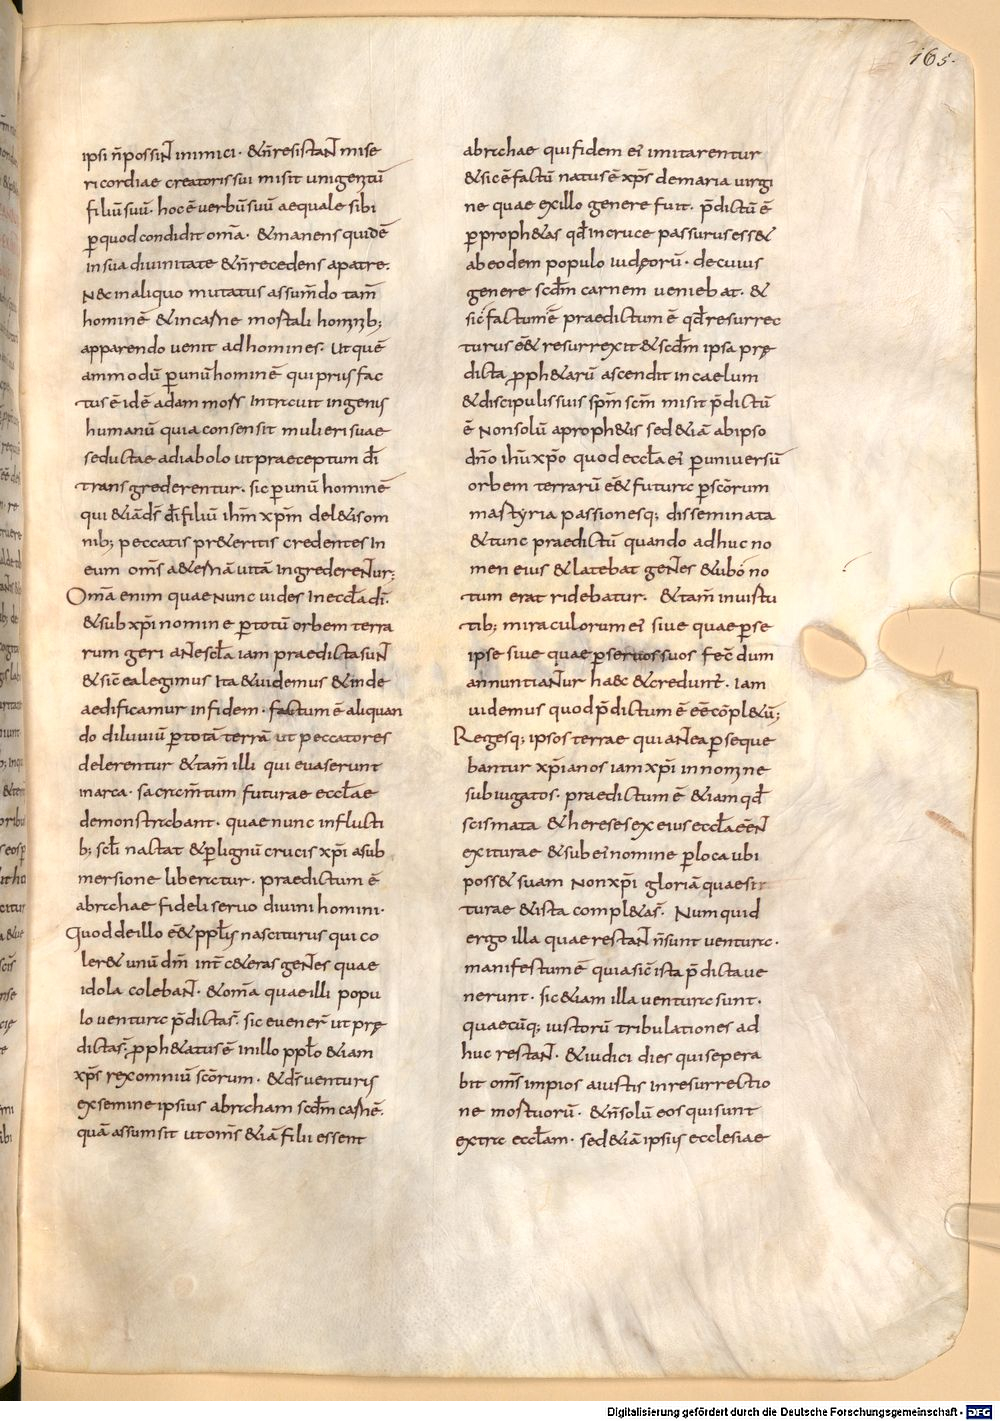 165.
ipsi n̄possiNt inimici · &n̄resistaNt mise
ricordiae creatoris sui misit unigenitū
filiū suū · hoc ē verbū suū aequale sibi
p̱ quod condidit om̄a · & manens quidē
in sua divinitate & n̄recedens a patre ·
Nec in aliquo mutatus assum̄do tam̄
hominē & in carne mortali hominib;
apparendo uenit ad homines · Ut quē
ammodū p̱ unū hominē qui prius fac
tus ē id ē adam mors intravit in genus
humanū quia consensit mulieri suae
seductae a diabolo ut praeceptum dī
transgrederentur · sic p̱ unū hominē
qui &iā ds̄ dī filiū ihm̄ xp̄m del&is om
nib; peccatis pr&eritis credentes in
eum om̄s ad&ernā uitā ingredereNtur;
Om̄a enim quae nunc uides in eccła dī ·
& sub xp̄i nomine p̱ totū orbem terra
rum geri aNte sc̄la iam praedicta suNt
& sic ea legimus Ita & uidemus & inde
aedificamur in fidem · factum ē aliquan
do diluuiū p̱ totā terrā ut peccatores
delerentur & tam̄ illi qui evaserunt
in arca · sacram̄tum futurae ecclae
demonstrabant · quae nunc in flucti
b; scłi nactat & p̱ lignū crucis xp̄i a sub
mersione liberatur · praedictum ē
abrahae fideli seruo diuini homini ·
Quod de illo ē& ppłs nasciturus qui co
ler& unū dm̄ int̄ c&eras geNtes quae
idola colebaNt · & om̄a quae illi popu
lo uentura p̄dicta s̄ · sic euener̄ ut prę
dicta s̄ · pph&atus ē in illo ppło &iam
xp̄s rex omniū scōrum · & ds̄ uenturus
ex semine ipsius abraham scdm̄ carnē ·
quā assumsit ut om̄s &iā filii essent
abrahae qui fidem ei imitarentur
& sic ē factū natus ē xp̄s de maria uirgi
ne quae ex illo genere fuit · p̄dictū ē
p̱ proph&as qd̄ in cruce passurus ess&
ab eodem populo iudęorū · de cuius
genere scdm̄ carnem ueniebat · &
sic factum ē praedictum ē qd̄ resurrec
turus ē& resurrexit & scdm̄ ipsa prę
dicta pph&arū ascendit in caelum
& discipulis suis spm̄ scm̄ misit p̄dictū
ē Non solū a proph&is sed &iā ab ipso
dn̄o ihū xp̄o quod eccła ei p̱ uniuersū
orbem terrarū ē& futura p̱ scōrum
martyria passionesq; disseminata
& tunc praedictū quando adhuc no
men eius & latebat geNtes & ubi no
tum erat ridebatur · & tam̄ in uirtu
tib; miraculorum ei siue quae p̱ se
ipse siue quae p̱ seruos suos fec̄ dum
annuntiaNtur haec & credunt̄ · iam
uidemus quod p̄dictum ē eē cōpl&ū;
Regesq; ipsos terrae qui aNtea p̱seque
bantur xp̄ianos iam xp̄i in nomine
subiugatos · praedictum ē & iam qd̄
scismata & hereses ex eius eccła eēNt
exiturae & sub ei nomine p̱ loca ubi
poss& suam Non xp̄i gloriā quaesi
turae & ista compl&a s̄ · Numquid
ergo illa quae restaNt n̄ sunt uentura ·
manifestum ē quia sic ista p̄dicta ue
nerunt · sic &iam illa uentura sunt ·
quaecūq; iustorū tribulationes ad
huc restaNt · & iudici dies qui sepera
bit om̄s impios a iustis in resurrectio
ne mortuorū · & n̄ solū eos qui sunt
extra eccłam · sed &iā ipsius ecclesiae
Digitalisierung gefördert durch die Deutsche Forschungsgemeinschaft - DFG